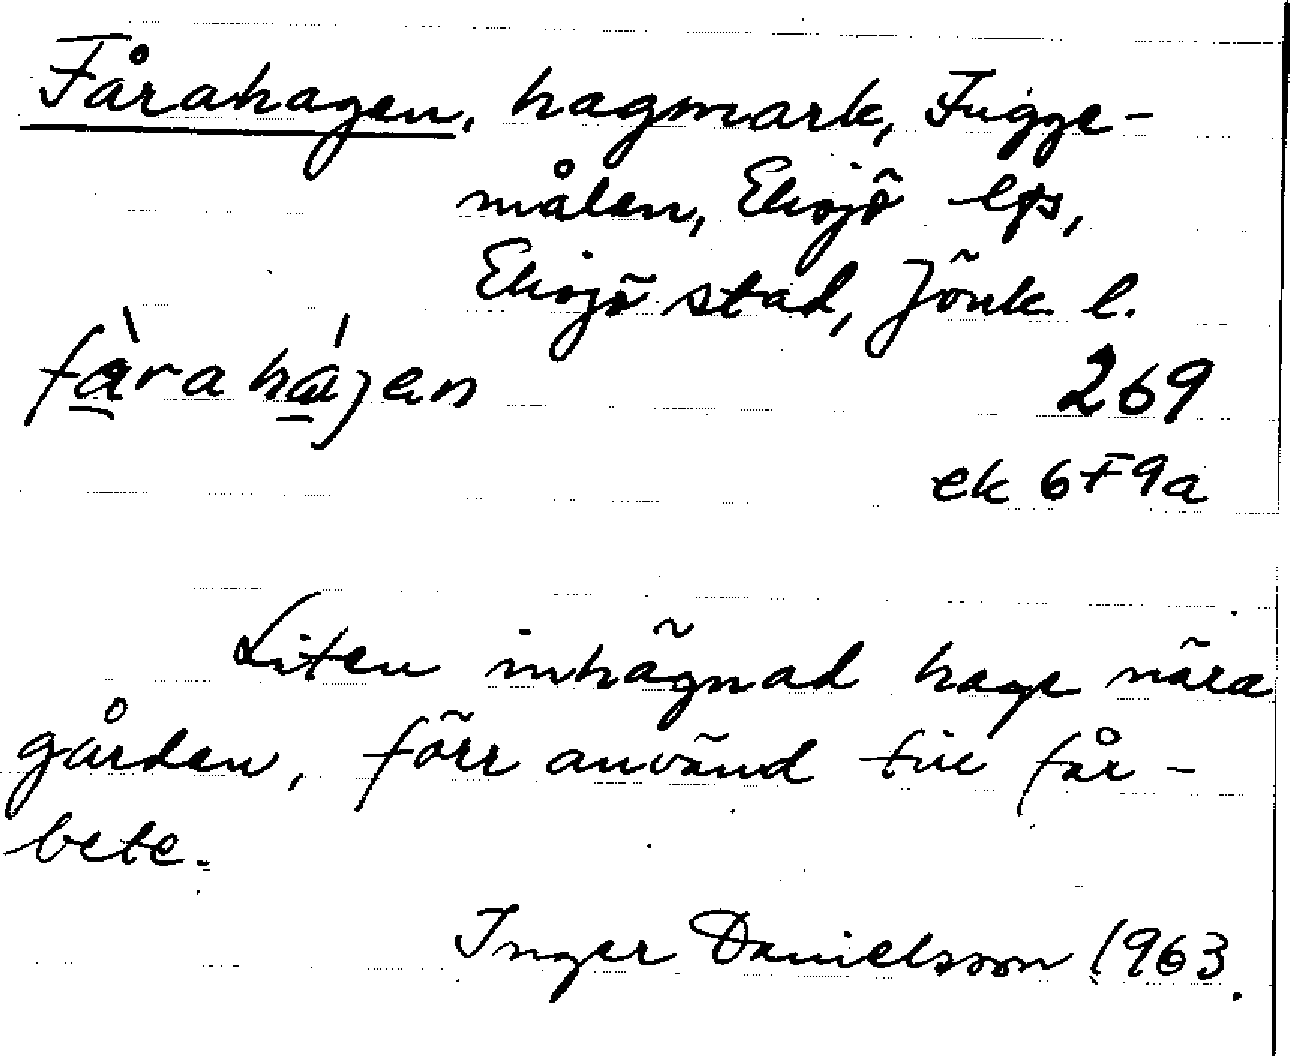 Fårahagen, hagmark, Fugge-
målen, Eksjö lfs,
Eksjö stad, Jönk. l.
269
ek 6F9a
Liten inhägnad hage nära
gården, förr använd till får-
bete.
Inger Danielsson 1963.